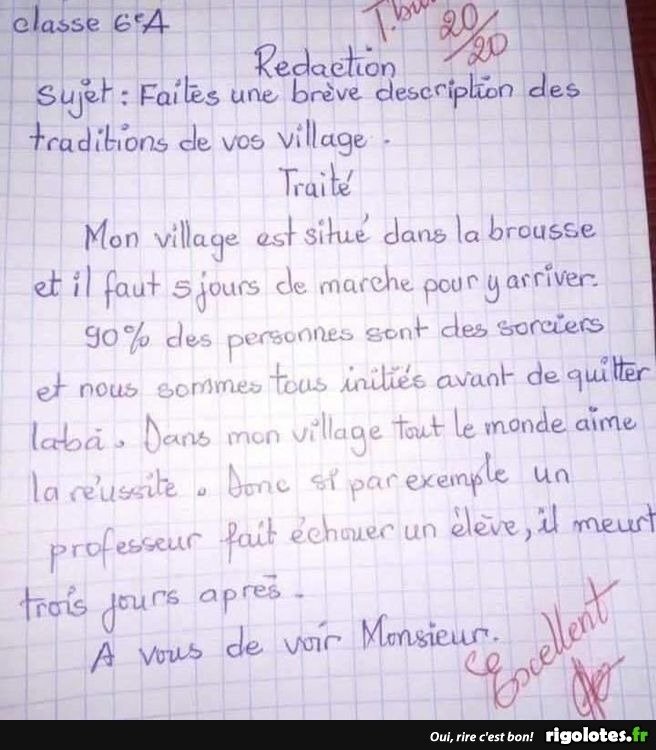 classe 6eA
T. bien
20/20
Redaction
Sujet : Faites une brève description des
traditions de vos village.
Traité
Mon village est situé dans la brousse
et il faut 5 jours de marche pour y arriver.
90% des personnes sont des sorciers
et nous sommes tous initiés avant de quitter
labà. Dans mon village tout le monde aime
la réussite. Donc si par exemple un
professeur fait échouer un élève, il meurt
trois jours après.
A vous de voir Monsieur.
Excellent
Oui, rire c'est bon! rigolotes.fr